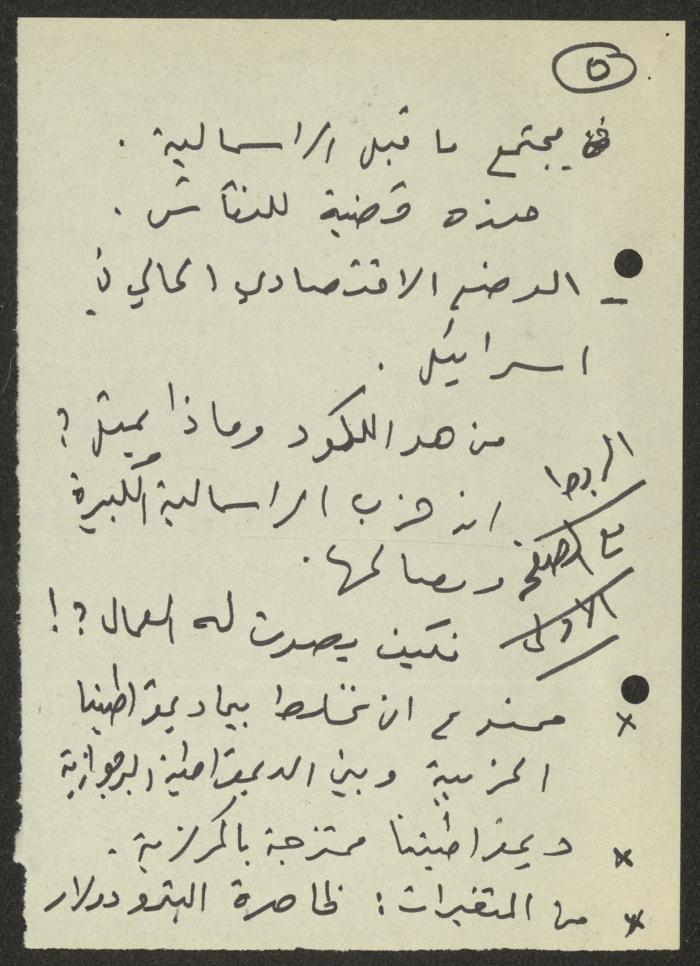 ٥
مجتمع ما قبل الراسمالية .
هذه قضية للنقاش .
- الوضع الاقتصادي الحالي في
اسرائيل .
من هو الليكود وماذا يمثل ؟
انه حزب الراسمالية الكبيرة
ومصالحها .
فكيف يصوت له العمال ؟!
الربط
مع الصفحة
الاولى
× ممنوع ان نخلط بين ديمقراطيتنا
الحزبية وبين الديمقراطية البرجوازية
× ديمقراطيتنا ممتزجة بالمركزية .
× من المتغيرات : ظاهرة البترودولار